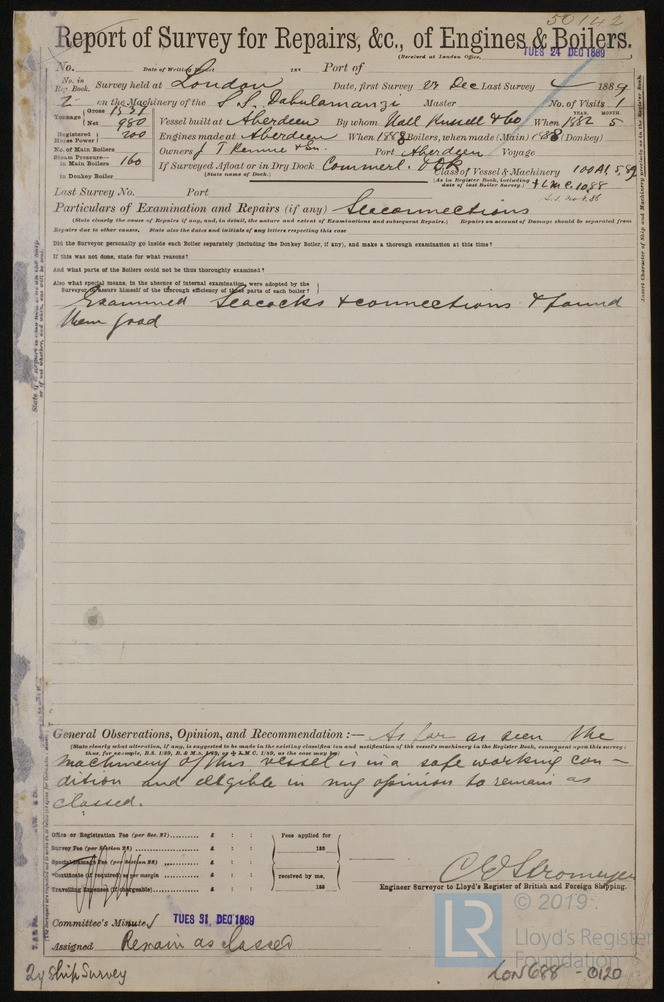 50142
Report of Survey for Repairs, &c., of Engines & Boilers.
(Received at London Office, TUES 24 DEC 1889
No. Date of Writing Report 188 Port of
No. in Reg. Book. Survey held at London Date, first Survey 23 Dec Last Survey 1889
2 on the Machinery of the S.S. Dabulamanzi Master No. of Visits 1
Tonnage Gross 1331 Net 980 Vessel built at Aberdeen By whom Hall Russell & Co When YEAR. 1882 MONTH. 5
Registered Horse Power 200 Engines made at Aberdeen When 1888 Boilers, when made (Main) 1888 (Donkey)
No. of Main Boilers Owners J T Rennie & Co. Port Aberdeen Voyage
Steam Pressure— in Main Boilers 160 If Surveyed Afloat or in Dry Dock Commercl. Class of Vessel & Machinery 100A1. 5,89
in Donkey Boiler (State name of Dock.) (As in Register Book, including date of last Boiler Survey.) + L.M.C. 10,88
Last Survey No. Port
Particulars of Examination and Repairs (if any) Seaconnections
(State clearly the cause of Repairs if any, and, in detail, the nature and extent of Examinations and subsequent Repairs.) Repairs on account of Damage should be separated from
Repairs due to other causes. State also the dates and initials of any letters respecting this case
Did the Surveyor personally go inside each Boiler separately (including the Donkey Boiler, if any), and make a thorough examination at this time?
If this was not done, state for what reasons?
And what parts of the Boilers could not be thus thoroughly examined?
Also what special means, in the absence of internal examination, were adopted by the
Surveyor to assure himself of the thorough efficiency of those parts of each boiler?
Examined Seacocks & connections & found
them good
General Observations, Opinion, and Recommendation :— As far as seen the
(State clearly what alteration, if any, is suggested to be made in the existing classification and notification of the vessel's machinery in the Register Book, consequent upon this survey;
thus, for example, B.S. 1/89, B. & M.S. 1/89, or + L.M.C. 1/89, as the case may be)
machinery of this vessel is in a safe working con-
dition and eligible in my opinion to remain as
classed.
Office or Registration Fee (per Sec. 27) £ : : Fees applied for
Survey Fee (per Section 28) £ : : 188
Special Damage Fee (per Section 28) £ : :
*Certificate (if required) as per margin £ : : received by me,
Travelling Expenses (if chargeable) £ : : 188
C E Stromeyer
Engineer Surveyor to Lloyd's Register of British and Foreign Shipping.
Committee's Minute TUES 31 DEC 1889
Assigned Remain as classed
2y Ship Survey
LON688-0120
© 2019
LR Lloyd's Register
Foundation